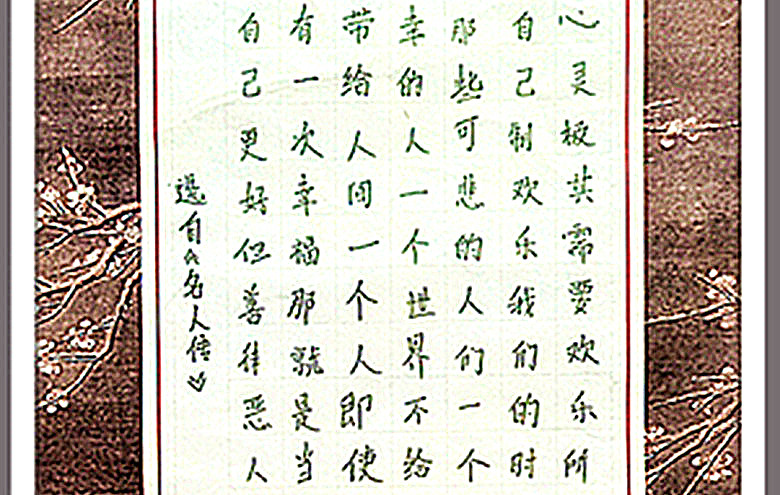 心灵极其需要欢乐所
自己制欢乐我们的时
那些可悲的人们一个
幸的人一个世界不给
带给人间一个人即使
有一次幸福那就是当
自己更好但善待恶人
選自《名人传》